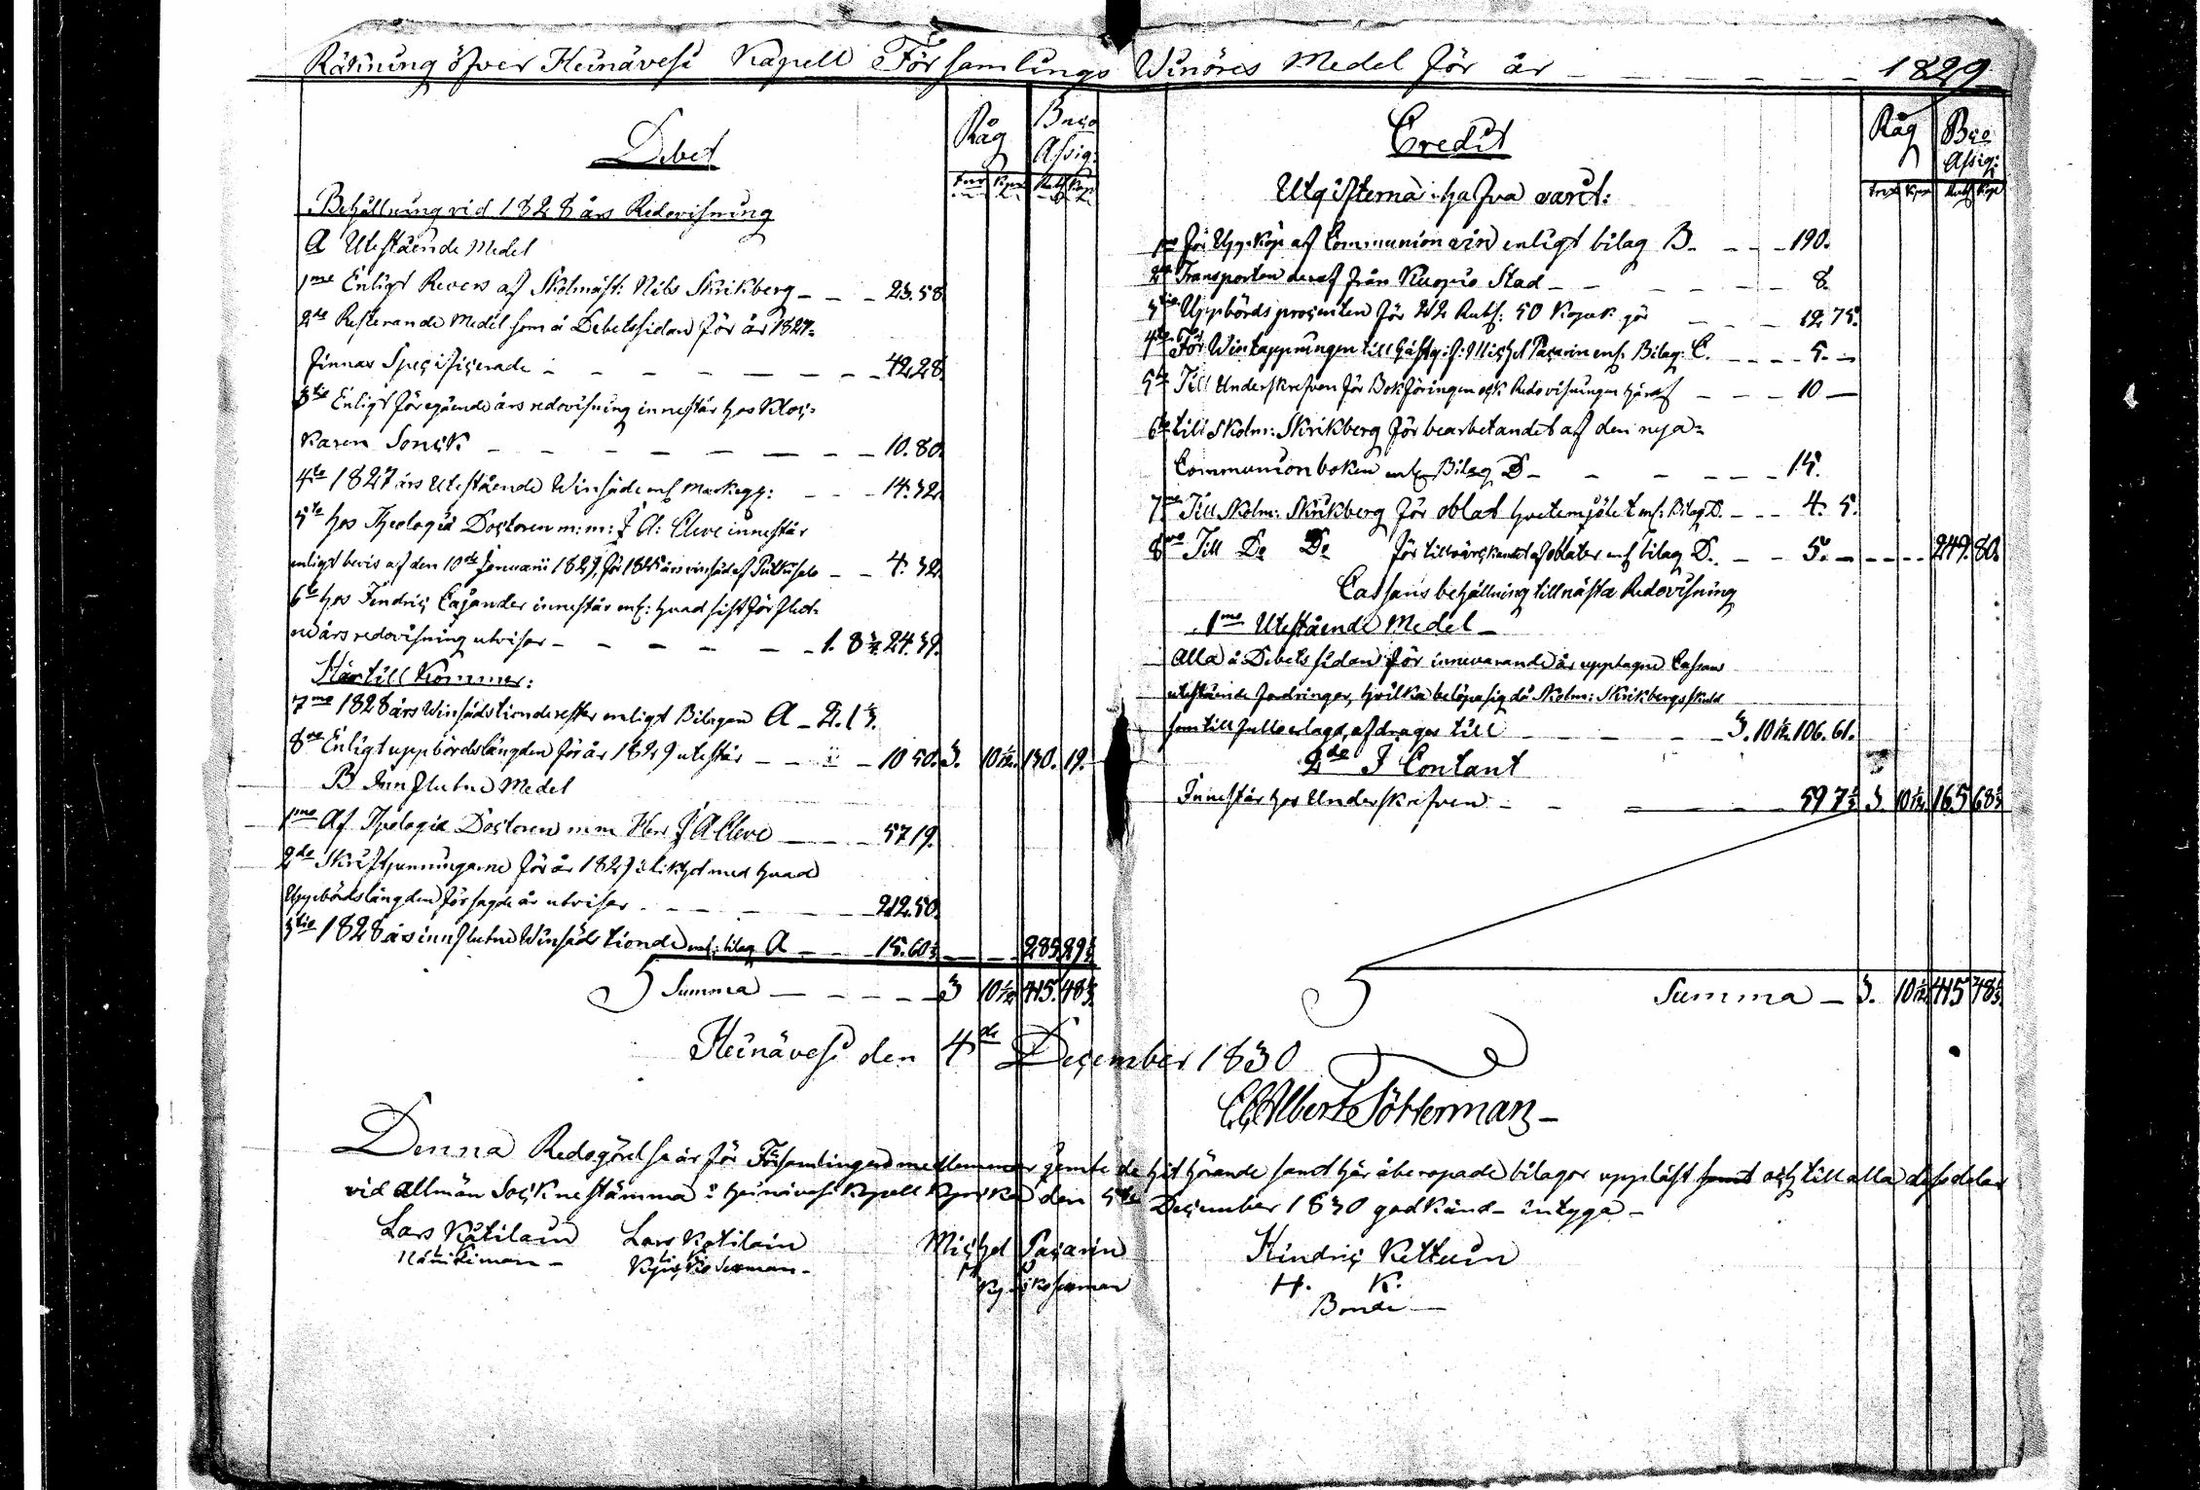 Räkning öfver Heinävesi Kapell Församlings Winöres Medel för år - - - - - - 1829
Debet
Råg
Bnco Assig:
Behållning vid 1828 års Redovisning
A Utestående Medel
1mo Enligt Revers af Skolmäst: Nils Skrikberg - - - 23.58
2do Resterande Medel som å Debetssidan för år 1827-
finnas Specificerade - - - - - - - - 42.28.
3tio Enligt föregående års redovisning innestår hos Kloc-
karen Sonck - - - - - - - - 10.80.
4to 1827 års Utestående Winsäde - - - 14.32
5to hos Theologiæ Doctoren m: m: J A: Cleve innestår
enligt bevis af den 10de Januarii 1829, för 1825 års - - 4. 32.
6to hos Hindric Cajander innestår enl: hvad sistförflut-
ne års redovisning utvisar - - - - - - 1. 8 3/4. 24.39.
Härtill Kommer:
7mo 1828 års Winsädstionderester enligt Bilagan A - 2. 1 3/4.
8vo Enligt uppbördslängden för år 1829 utestår - - - 10 50. 3. 10 1/2. 130. 19.
B Innflutne Medel
1mo Af Theologiæ Doctoren m m Herr J A Cleve - - - - 57 19.
2do Skriftpenningarne för år 1829 i likhet med hvad
Uppbördslängden för sagde år utvisar - - - - - - 212.50.
3tio 1828 års innflutne Winsäds tionde enl: bilag A - - - 15.60 1/2 - - - 285 29 1/2
Summa - - - - - - 3 10 1/2 415. 48 1/2
Credit
Råg
Bco Assig:
Utgifterna hafva varit:
1mo för Uppköp af Communion vin enligt bilag B. - - - 190.
2do Transporten deraf från Kuopio Stad - - - - - - 8.
3tio Uppbördsprocenten för 212 Rub: 50 Kopek gör - - - 12 75.
4to För Wintappningen till Gästgif: Michel Pasarin enl: Bilag: C. - - - - 5. -
5to Till Underskrefven för Bokföringen och Redovisningen häraf - - - 10 -
6to till Skolm: Skrikberg för bearbetandet af den nya-
Communionboken enl Bilag D - - - - - - 15.
7mo Till Skolm: Skrikberg för oblat hvetemjölet enl: Bilag D. - - - 4. 5.
8vo Till Do Do för tillverkandet af oblater enl bilag D. - - 5. - - - - - 249. 80.
Cassans behållning till nästa Redovisning
1mo Utestående Medel -
Alla å Debets sidan för innevarande år upptagne Cassans
utestående fordringar, hvilka belöpa sig då Skolm: Skrikbergs skuld
som till fullo erlagd, afdrages till - - - - - 3. 10 1/2. 106. 61.
2do I Contant
Innestår hos Underskrefven - - - - - - 59 7 1/2 3. 10 1/2 165 68 1/2
Summa - 3. 10 1/2 415 48 1/2
Heinävesi den 4de December 1830
Albert Söhlerman -
Denna Redogörelse är för Församlingens medlemmar jemte de hit hörande samt här åberopade bilagor uppläst och till alla dess delar
vid allmän Sockne stämma i Heinävesi Kapell Kyrka den 5te December 1830 godkänd - intyga -
Lars Kutilain Lars Kotilain Michel Pasarin Hindric Kettuin
Nämdeman - Kyrckio Sexman - Sexman H. K.
Bonde -